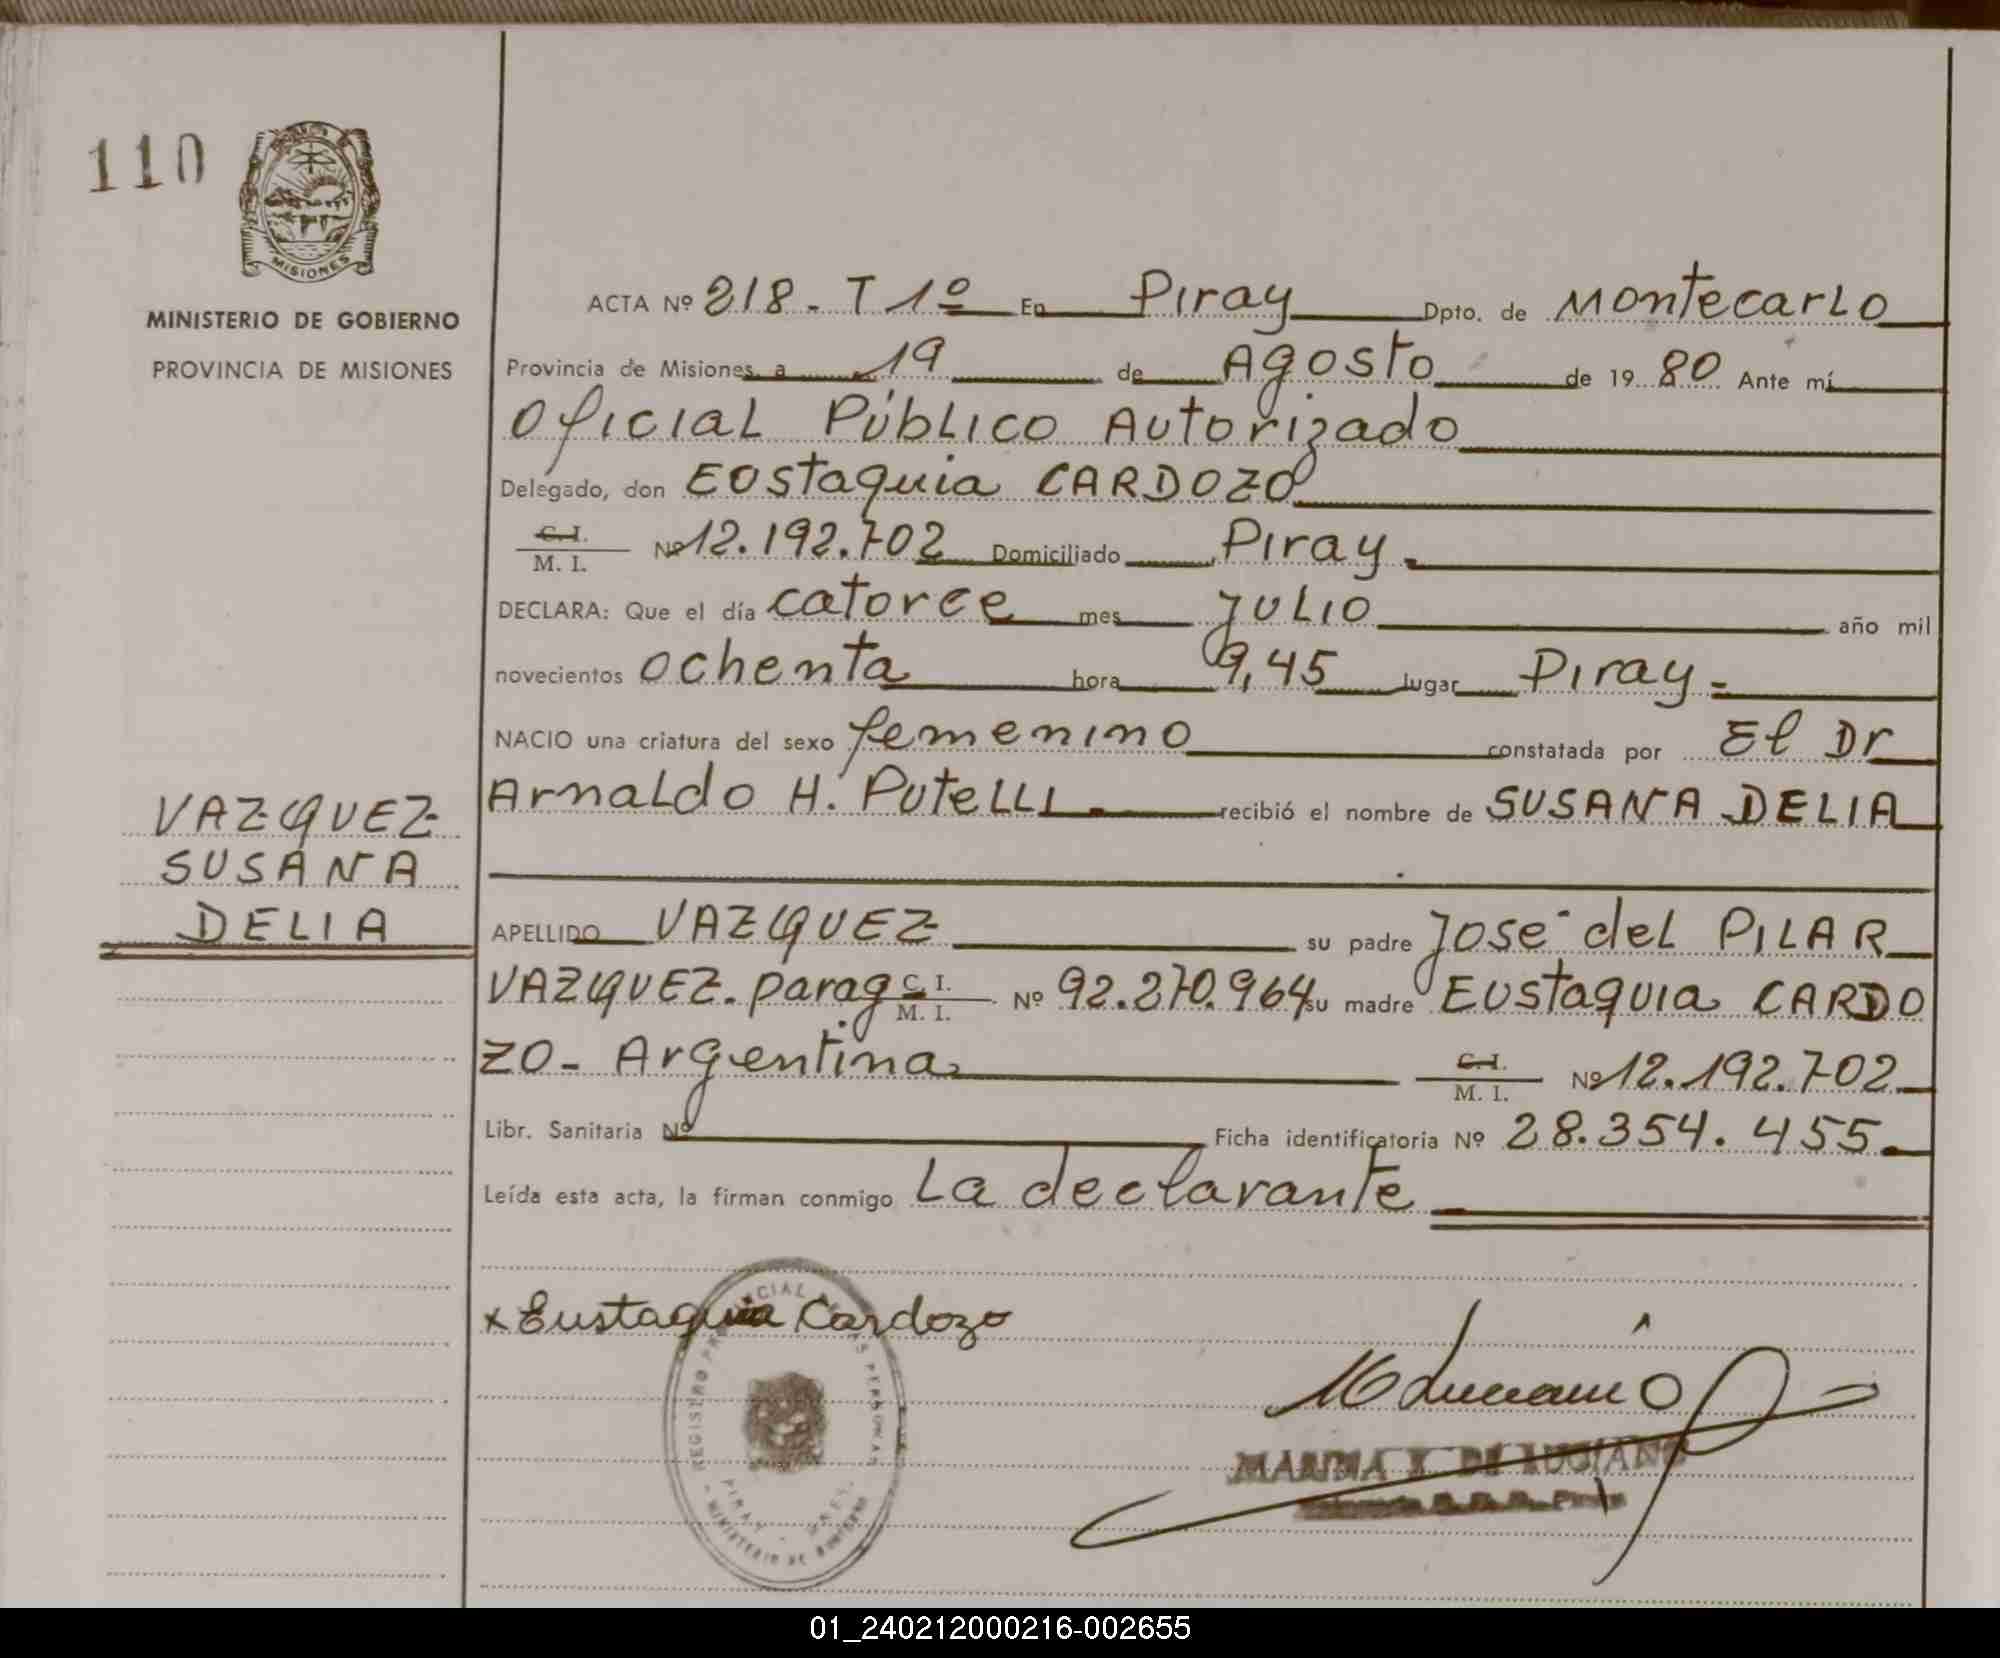 110
MISIONES
MINISTERIO DE GOBIERNO
PROVINCIA DE MISIONES
ACTA Nº 218. T 1º En Piray Dpto. de Montecarlo
Provincia de Misiones, a 19 de Agosto de 1980 Ante mí
Oficial Público Autorizado
Delegado, don Eustaquia CARDOZO
C. I.
M. I. Nº 12.192.702 Domiciliado Piray
DECLARA: Que el día catorce mes Julio año mil
novecientos ochenta hora 9,45 lugar Piray -
NACIO una criatura del sexo femenino constatada por El Dr
Arnaldo H. Putelli recibió el nombre de SUSANA DELIA
VAZQUEZ
SUSANA
DELIA
APELLIDO VAZQUEZ su padre José del PILAR
VAZQUEZ. parag. C. I.
M. I. Nº 92.270.964 su madre Eustaquia CARDO
ZO - Argentina C. I.
M. I. Nº 12.192.702
Libr. Sanitaria Nº Ficha identificatoria Nº 28.354.455.
Leída esta acta, la firman conmigo La declarante
x Eustaquia Cardozo
REGISTRO PROVINCIAL DE LAS PERSONAS
PIRAY - MNES.
MINISTERIO DE GOBIERNO
DE LUCIANO
01_240212000216-002655